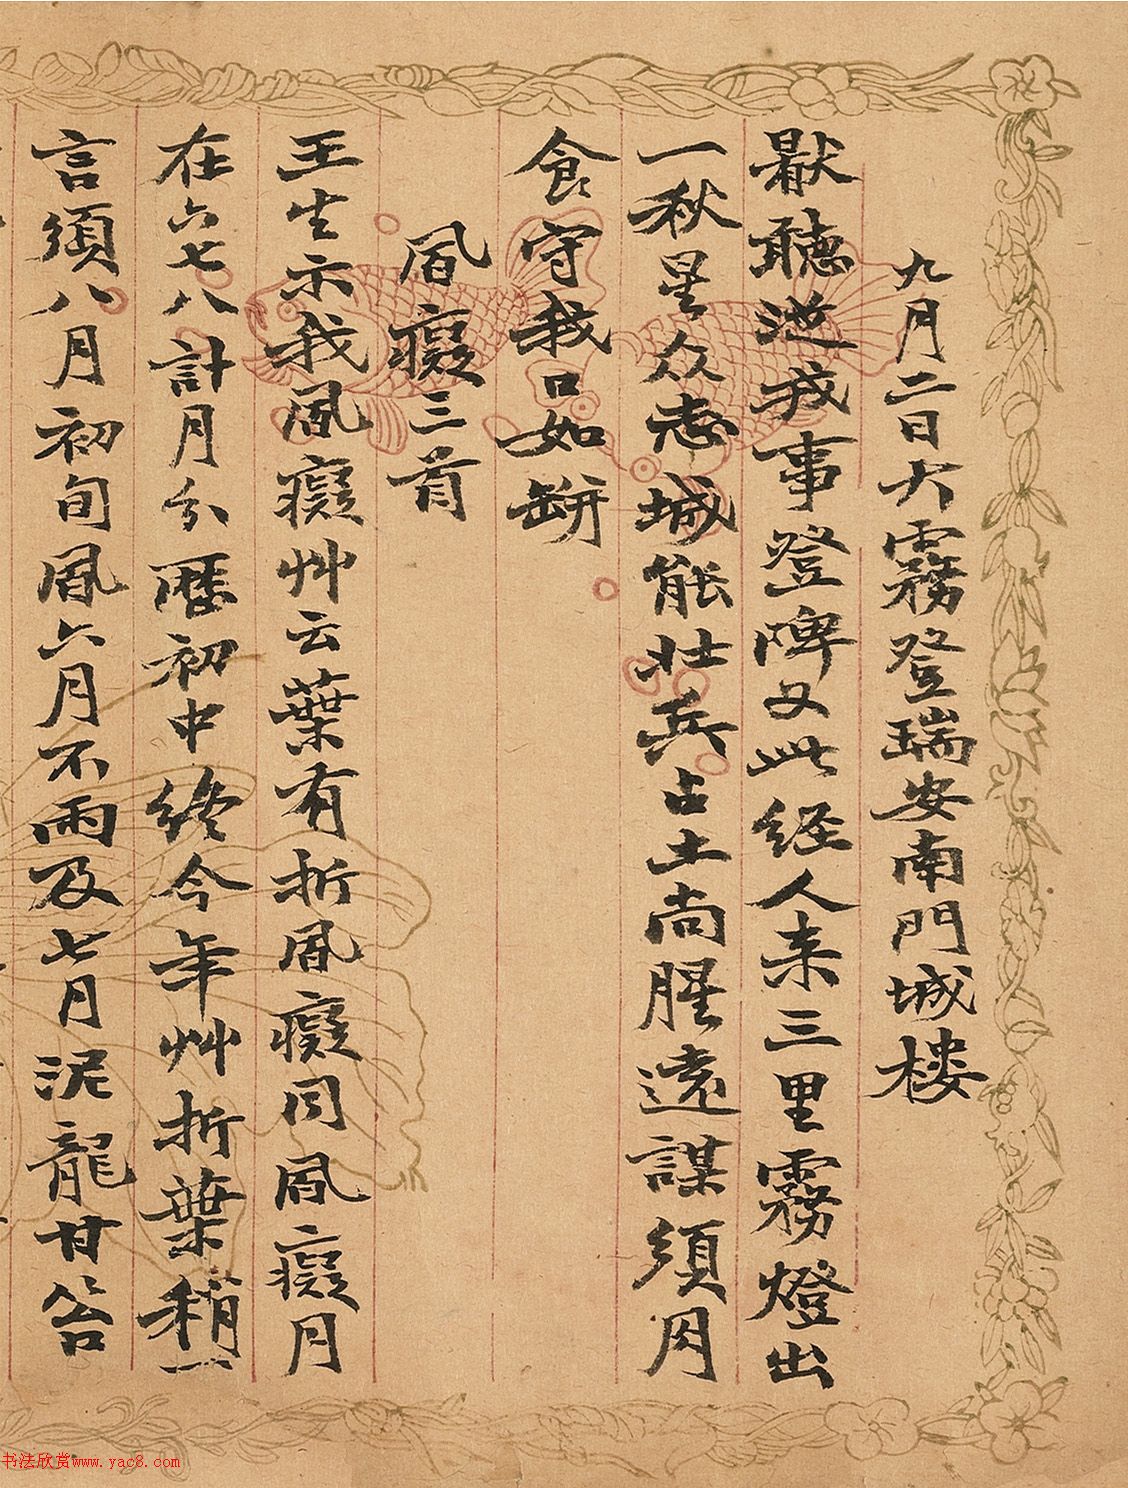 九月二日大霧登瑞安南門城楼
猒聽泄戎事登陴又此经人来三里霧燈出
一秋星众志城能壮兵占土尚腥遠謀須肉
食守我口如缾
風癡三首
王生示我風癡艸云葉有折風癡同風癡月
在六七八計月分曆初中終今年艸折葉稍一
言須八月初旬風六月不雨及七月泥龍甘笞
书法欣赏www.yac8.com